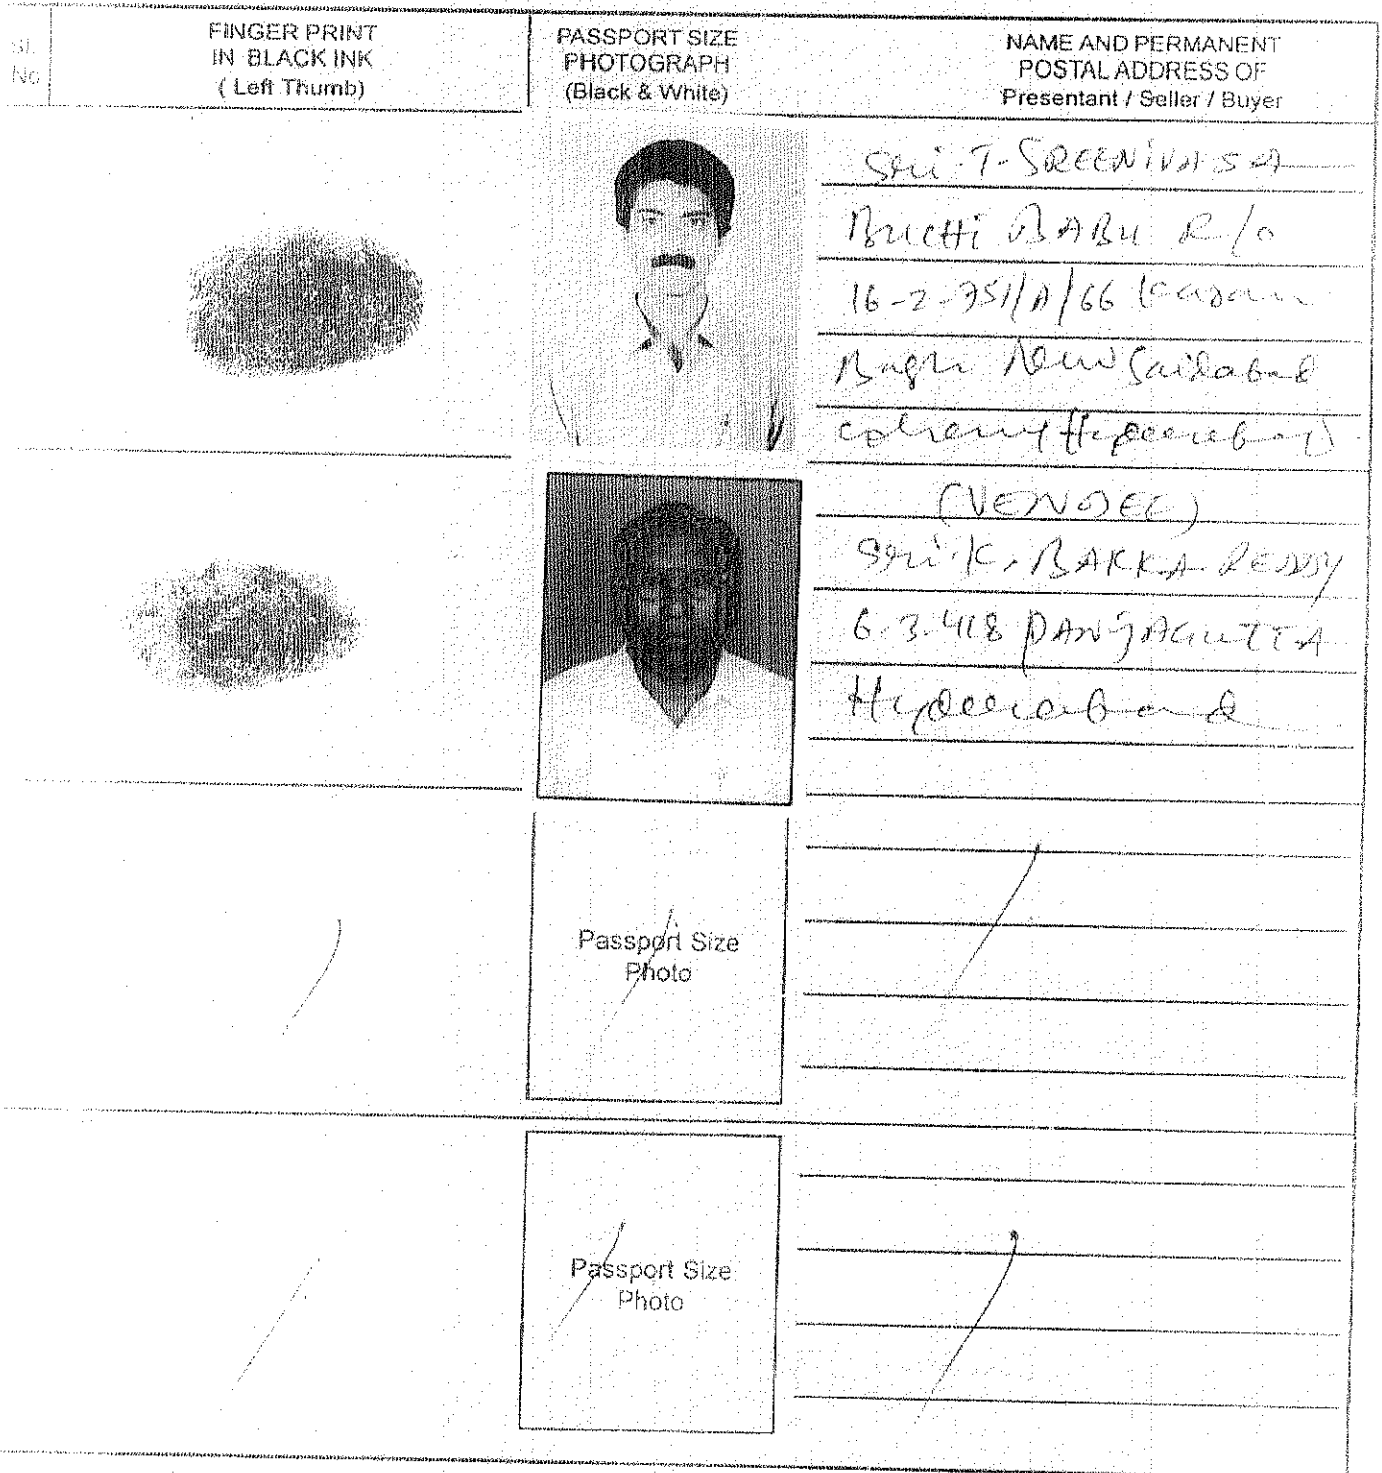 Sl.
No
FINGER PRINT
IN BLACK INK
( Left Thumb)
PASSPORT SIZE
PHOTOGRAPH
(Black & White)
NAME AND PERMANENT
POSTAL ADDRESS OF
Presentant / Seller / Buyer
Sri T. SREENIVASA
BUCHHi BABU R/o
16-2-751/A/66 Karan
Bagh New Saidabad
colony Hyderabad
(VENDEE)
Sri K. BAKKA REDDY
6.3.418 PANJAGUTTA
Hyderabad
Passport Size
Photo
Passport Size
Photo